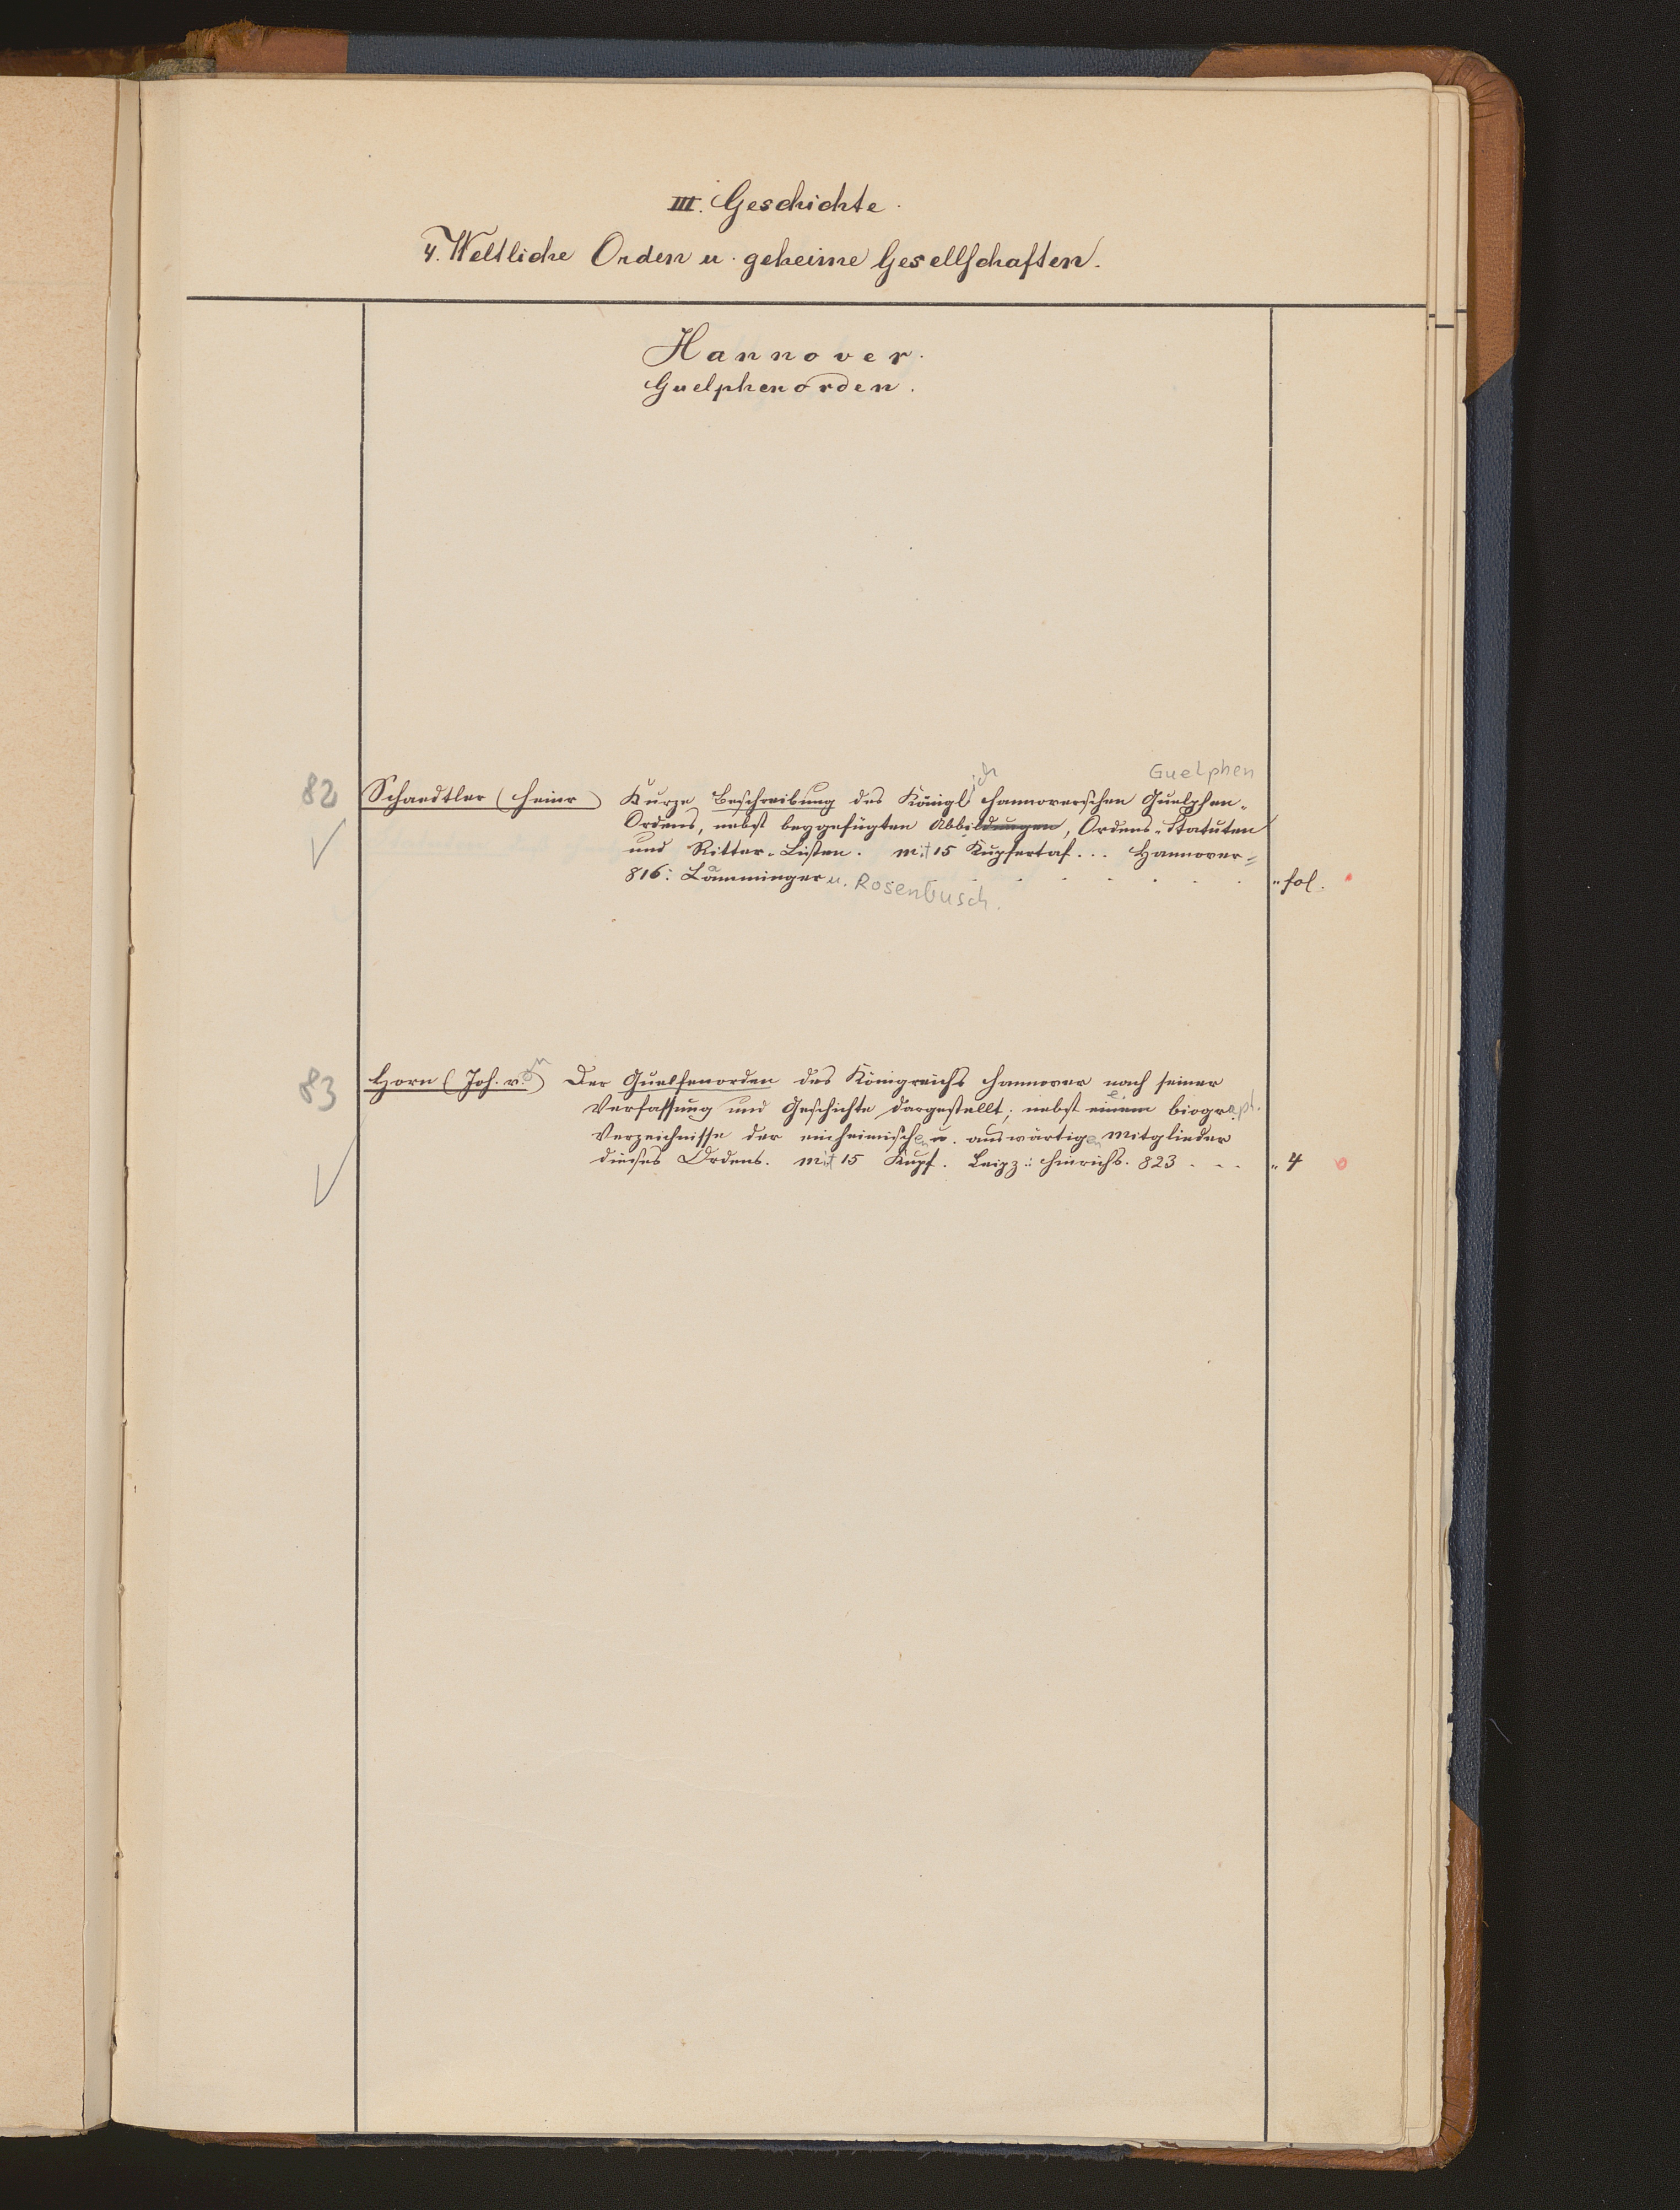 III. Geschichte.
4. Weltliche Orden u. geheime Gesellschaften.
Hannover.
Guelphenorden.
Guelphen
82 Schaedtler (Heinr) Kurze Beschreibung des Königlich Hannoverschen Guelphen-
Ordens, nebst beygefügten Abbildungen, Ordens-Statuten
und Ritter-Listen. Mit 15 Kupfertaf... Hannover
816: Lamminger u. Rosenbusch. " fol.
83 Horn (Joh. von) Der Guelfenorden des Königreichs Hannover nach seiner
Verfassung und Geschichte dargestellt; nebst einem biograph.
Verzeichnisse der einheimischen u. auswärtigen Mitglieder
dieses Ordens. Mit 15 Kupf. Leipz: Hinrichs. 823 . . . " 4